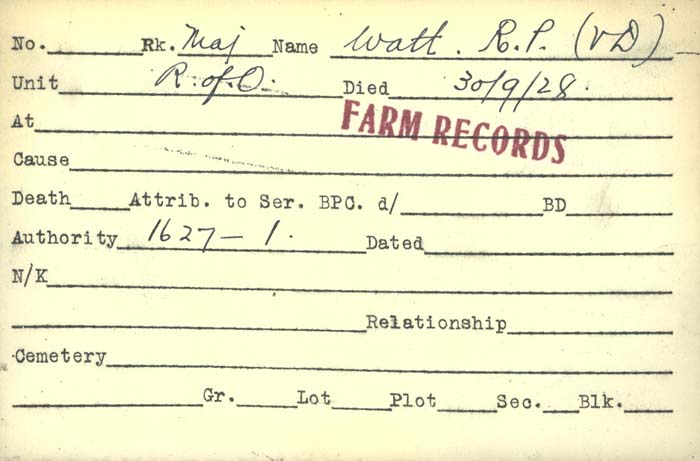 No. Rk. Maj Name Watt. R.P. (VD)
Unit R. of O. Died 30/9/28.
At FARM RECORDS
Cause
Death Attrib. to Ser. BPC. d/ BD
Authority 1627-1. Dated
N/K
Relationship
Cemetery
Gr. Lot Plot Sec. Blk.